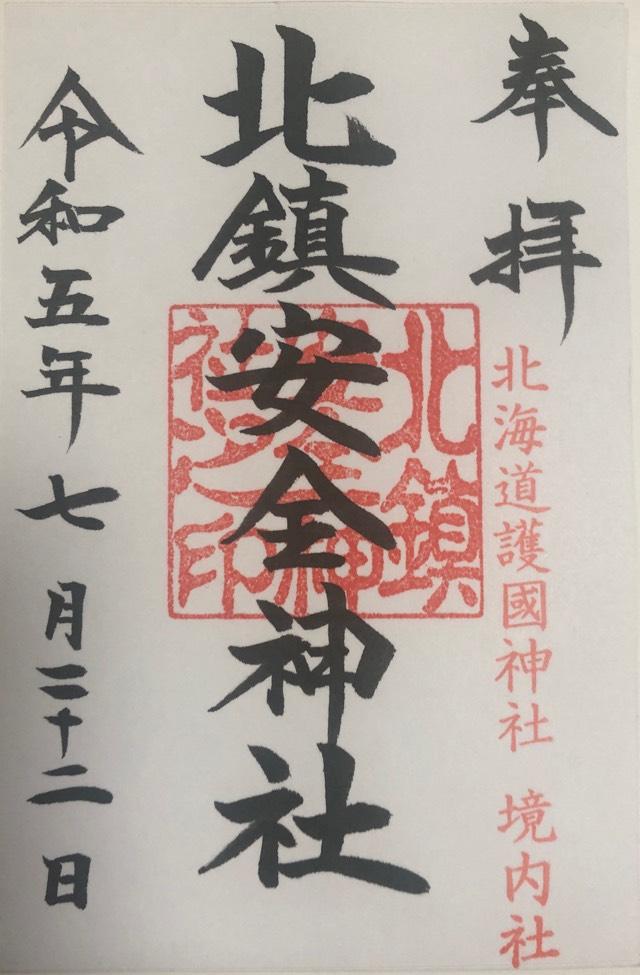 奉拝
北海道護國神社 境内社
北鎮安全神社
北鎮安全神社之印
令和五年七月二十二日